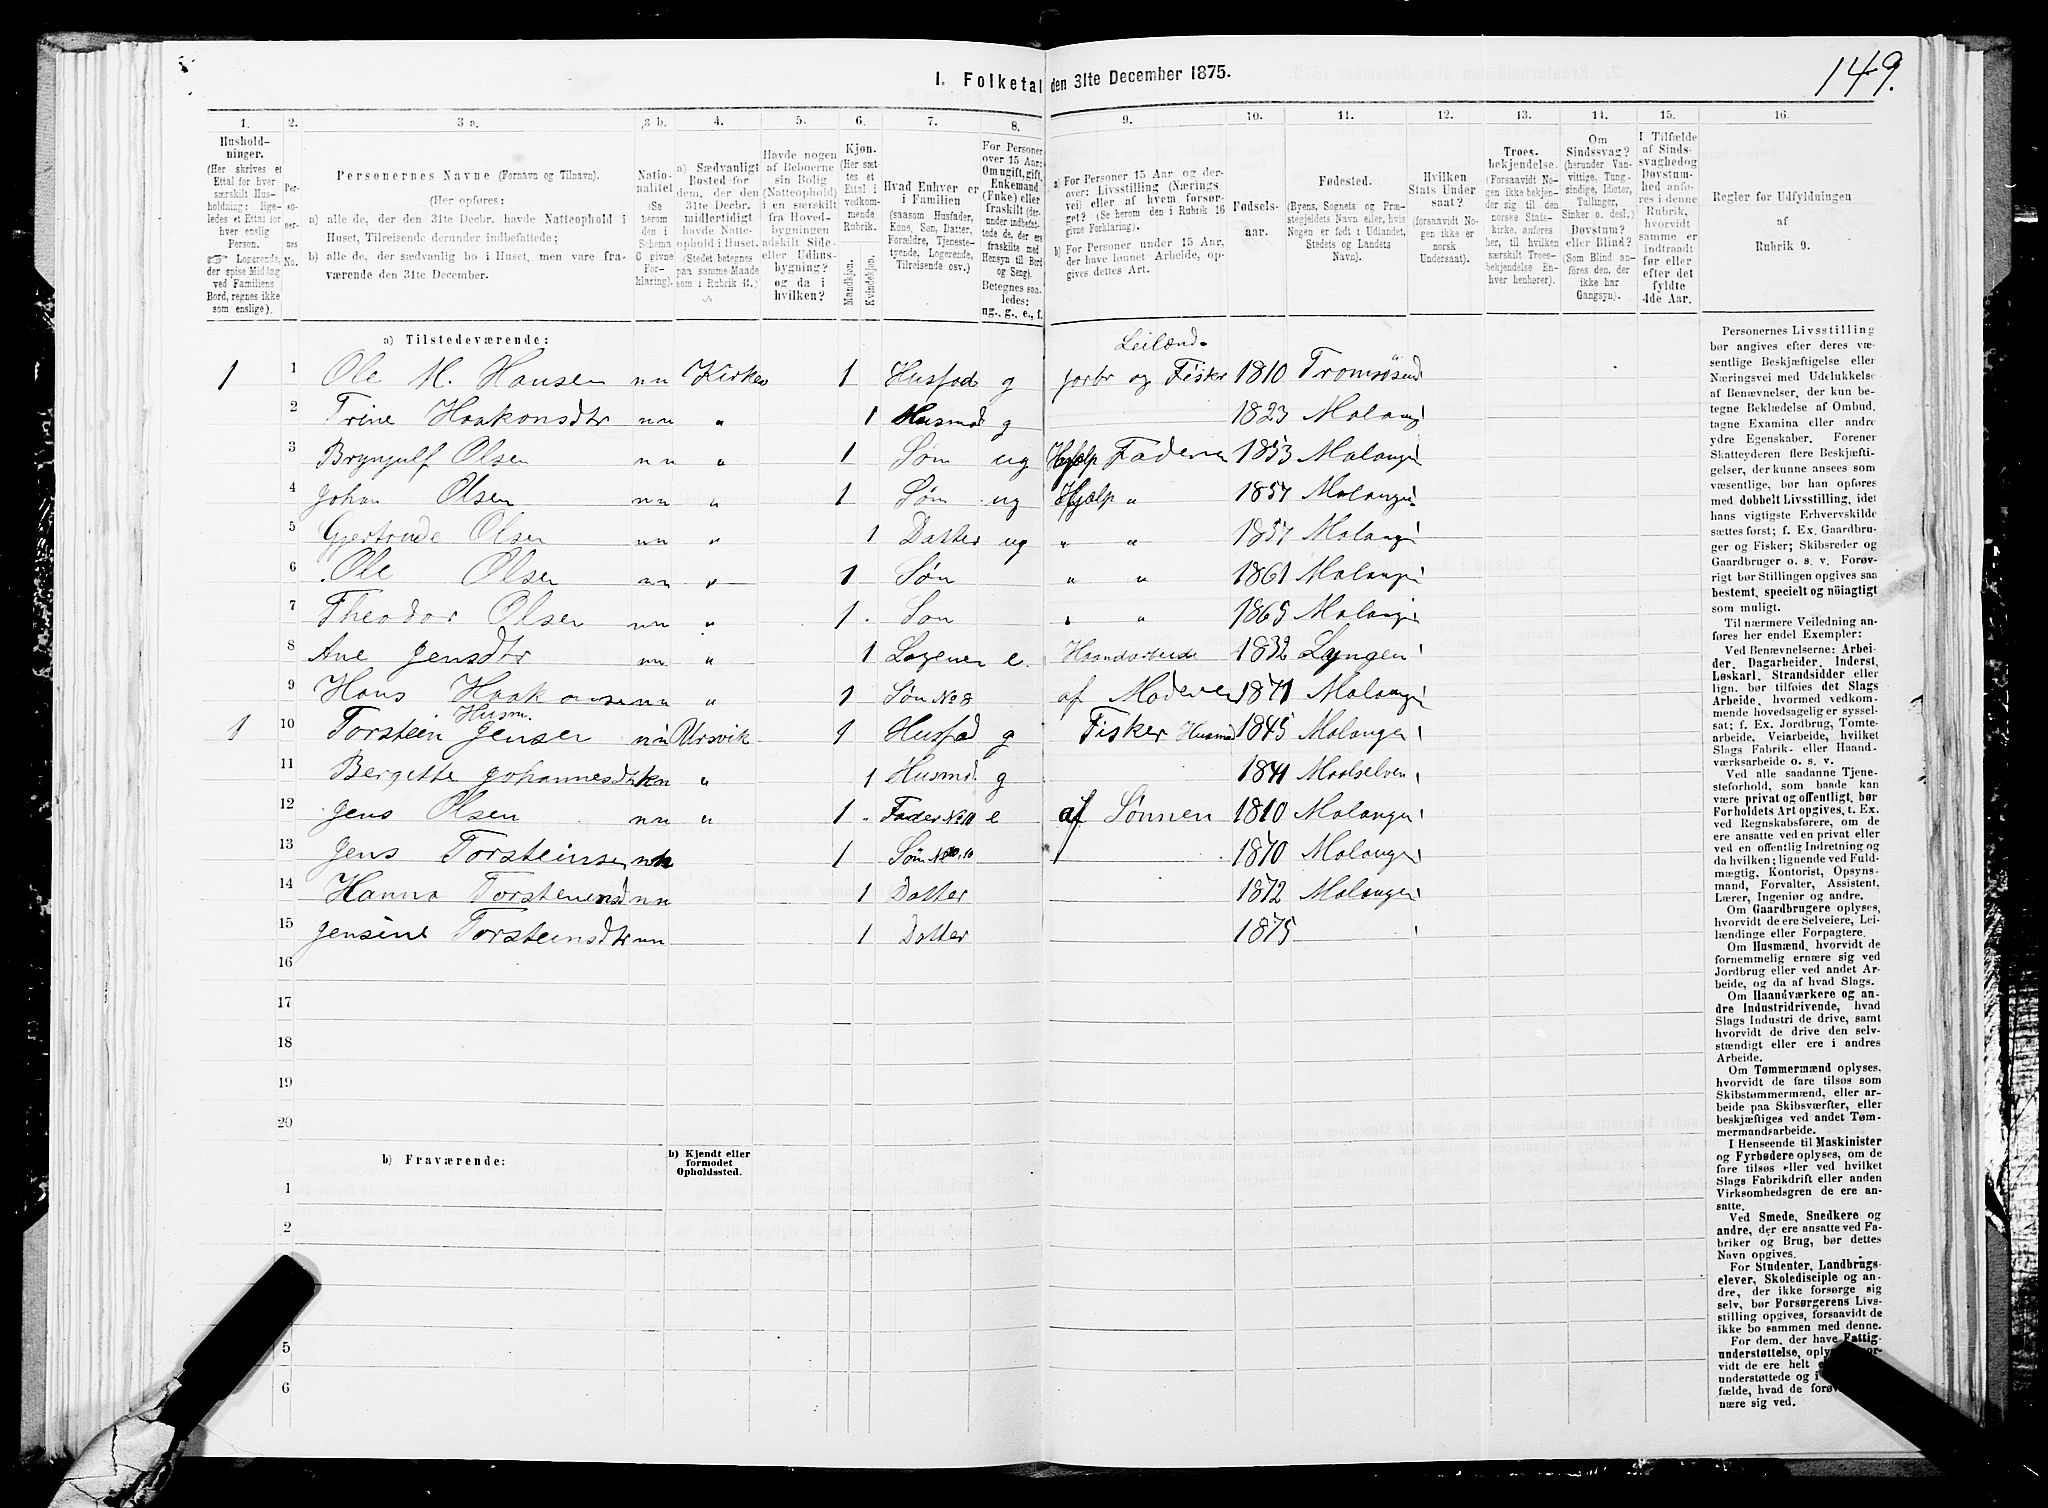 149.
I. Folketal den 31te December 1875.
1. 2. 3 a. 3 b. 4. 5. 6. 7. 8. 9. 10. 11. 12. 13. 14. 15. 16.
Hushold-
ninger.
(Her skrives et
Ettal for hver
særskilt Hus-
holdning; lige-
ledes et Ettal for
hver enslig
Person.
☞ Logerende,
der spise Middag
ved Familiens
Bord, regnes ikke
som enslige).
Per-
so-
ner-
nes
No.
Personernes Navne (Fornavn og Tilnavn).
(Her opføres:
a) alle de, der den 31te Decbr. havde Natteophold i
Huset, Tilreisende derunder indbefattede;
b) alle de, der sædvanlig bo i Huset, men vare fra-
værende den 31te December.
Natio-
nalitet
(Se
herom
den i
Schema
C givne
For-
klaring).
a) Sædvanligt
Bosted for
dem, der den
31te Decbr.
midlertidigt
havde Natte-
ophold i Huset.
(Stedet betegnes
paa samme Maade
som i Rubrik 11.)
Havde nogen
af Beboerne
sin Bolig
(Natteophold)
i en særskilt
fra Hoved-
bygningen
adskilt Side-
eller Udhus-
bygning?
og da i
hvilken?
Kjøn.
(Her sæt-
tes et
Ettal i
vedkom-
mende
Rubrik.
Mandkjøn.
Kvindekjøn.
Hvad Enhver er
i Familien
(saasom Husfader,
Kone, Søn, Datter,
Forældre, Tjeneste-
tyende, Logerende,
Tilreisende osv.)
For Personer
over 15 Aar:
Om ugift, gift,
Enkemand
(Enke) eller
fraskilt (der-
under indbefat-
tede de, der ere
fraskilte med
Hensyn til Bord
og Seng).
Betegnes saa-
ledes:
ug., g., e., f.
a) For Personer 15 Aar og der-
over: Livsstilling (Nærings-
vei) eller af hvem forsør-
get? (Se herom den i Rubrik 16
givne Forklaring).
b) For Personer under 15 Aar,
der have lønnet Arbeide, op-
gives dettes Art.
Fødsels-
aar.
Fødested.
(Byens, Sognets og Præ-
stegjeldets Navn eller, hvis
Nogen er født i Udlandet,
Stedets og Landets
Navn).
Hvilken
Stats Under-
saat?
(forsaavidt No-
gen ikke er
norsk
Undersaat).
Troes-
bekjendelse.
(Forsaavidt No-
gen ikke bekjen-
der sig til den
norske Stats-
kirke, anføres
her, til hvilken
særskilt Troes-
bekjendelse En-
hver henhører).
Om
Sindssvag?
(herunder Van-
vittige, Tung-
sindige, Idioter,
Tullinger,
Sinker o. desl.)
Døvstum?
eller Blind?
(Som Blind an-
føres den, der
ikke har
Gangsyn).
I Tilfælde
af Sindssvaghed og
Døvstum-
hed anfø-
res i denne
Rubrik,
hvorvidt
samme er
indtraadt
før eller
efter det
fyldte
4de Aar.
Regler for Udfyldningen
af
Rubrik 9.
a) Tilstedeværende:
Leilænd-
1 1 Ole M. Hansen nn Kirkev 1 Husfad g jorbr og Fiskr 1810 Tromsøsund
2 Trine Haakonsdtr nn " 1 Husmod g 1823 Malang
3 Brynjulf Olsen nn " 1 Søn ug Hjælp Faderen 1853 Malangen
4 Johan Olsen nn " 1 Søn ug Hjælp " 1857 Malangen
5 Gjertrude Olsen nn " 1 Datter ug " " 1857 Malangen
6 Ole Olsen nn " 1 Søn " " 1861 Malangen
7 Theodor Olsen nn " 1 Søn " " 1865 Malangen
8 Ane Jensdtr nn " 1 Logener e. Haandarbeide 1832 Lyngen
9 Hans Haakonsen nn " 1 Søn No 8 af Moderen 1871 Malangen
Husm.
1 10 Torstein Jensen nn Ursvik 1 Husfad g Fisker Husmd 1845 Malangen
11 Bergitte Johannesdtr kn " 1 Husmod g 1841 Maalselven
12 Jens Olsen nn " 1 Fader No 10 e af Sønnen 1810 Malangen
13 Jens Torsteinsen nk 1 Søn No 10 1870 Malangen
14 Hanna Torsteinsd nn 1 Datter 1872 Malangen
15 Jensine Torsteinsdtr nn 1 Datter 1875
16
17
18
19
20
b) Fraværende:
b) Kjendt eller
formodet
Opholdssted.
1
2
5
6
Personernes Livsstilling
bør angives efter deres væ-
sentlige Beskjæftigelse eller
Næringsvei med Udelukkelse
af Benævnelser, der kun be-
tegne Beklædelse af Ombud,
tagne Examina eller andre
ydre Egenskaber. Forener
Skatteyderen flere Beskjæfti-
gelser, der kunne ansees som
væsentlige, bør han opføres
med dobbelt Livsstilling, idet
hans vigtigste Erhvervskilde
sættes først; f. Ex. Gaardbru-
ger og Fisker; Skibsreder og
Gaardbruger o. s. v. Forøv-
rigt bør Stillingen opgives saa
bestemt, specielt og nöiagtigt
som muligt.
Til nærmere Veiledning an-
føres her endel Exempler:
Ved Benævnelserne: Arbei-
der, Dagarbeider, Inderst,
Løskarl, Strandsidder eller
lign. bør tilføies det Slags
Arbeide, hvormed vedkom-
mende hovedsagelig er syssel-
sat; f. Ex. Jordbrug, Tomte-
arbeide, Veiarbeide, hvilket
Slags Fabrik- eller Haand-
værksarbeide o. s. v.
Ved alle saadanne Tjene-
steforhold, som baade kan
være privat og offentligt, bør
Forholdets Art opgives, t. Ex.
ved Regnskabsførere, om de
ere ansatte ved en privat eller
ved en offentlig Indretning og
da hvilken; lignende ved Fuld-
mægtig, Kontorist, Opsyns-
mand, Forvalter, Assistent,
Lærer, Ingeniør og andre.
Om Gaardbrugere oplyses,
hvorvidt de ere Selveiere, Lei-
lændinge eller Forpagtere.
Om Husmænd, hvorvidt de
fornemmelig ernære sig ved
Jordbrug eller ved andet Ar-
beide, og da af hvad Slags.
Om Haandværkere og an-
dre Industridrivende, hvad
Slags Industri de drive, samt
hvorvidt de drive den selv-
stændigt eller ere i andres
Arbeide.
Om Tømmermænd oplyses,
hvorvidt de fare tilsøs som
Skibstømmermænd, eller ar-
beide paa Skibsværfter, eller
beskjæftiges ved andet Tøm-
mermandsarbeide.
I Henseende til Maskinister
og Fyrbødere oplyses, om de
fare tilsøs eller ved hvilket
Slags Fabrikdrift eller anden
Virksomhedsgren de ere an-
satte.
Ved Smede, Snedkere og
andre, der ere ansatte ved Fa-
briker og Brug, bør dettes
Navn opgives.
For Studenter, Landbrugs-
elever, Skoledisciple og an-
dre, der ikke forsørge sig
selv, bør Forsørgerens Livs-
stilling opgives, forsaavidt de
ikke bo sammen med denne.
For dem, der have Fattig-
understøttelse, oplyses, hvor-
vidt de ere helt
understøttede og i
fælde, hvad de
nære sig ved.